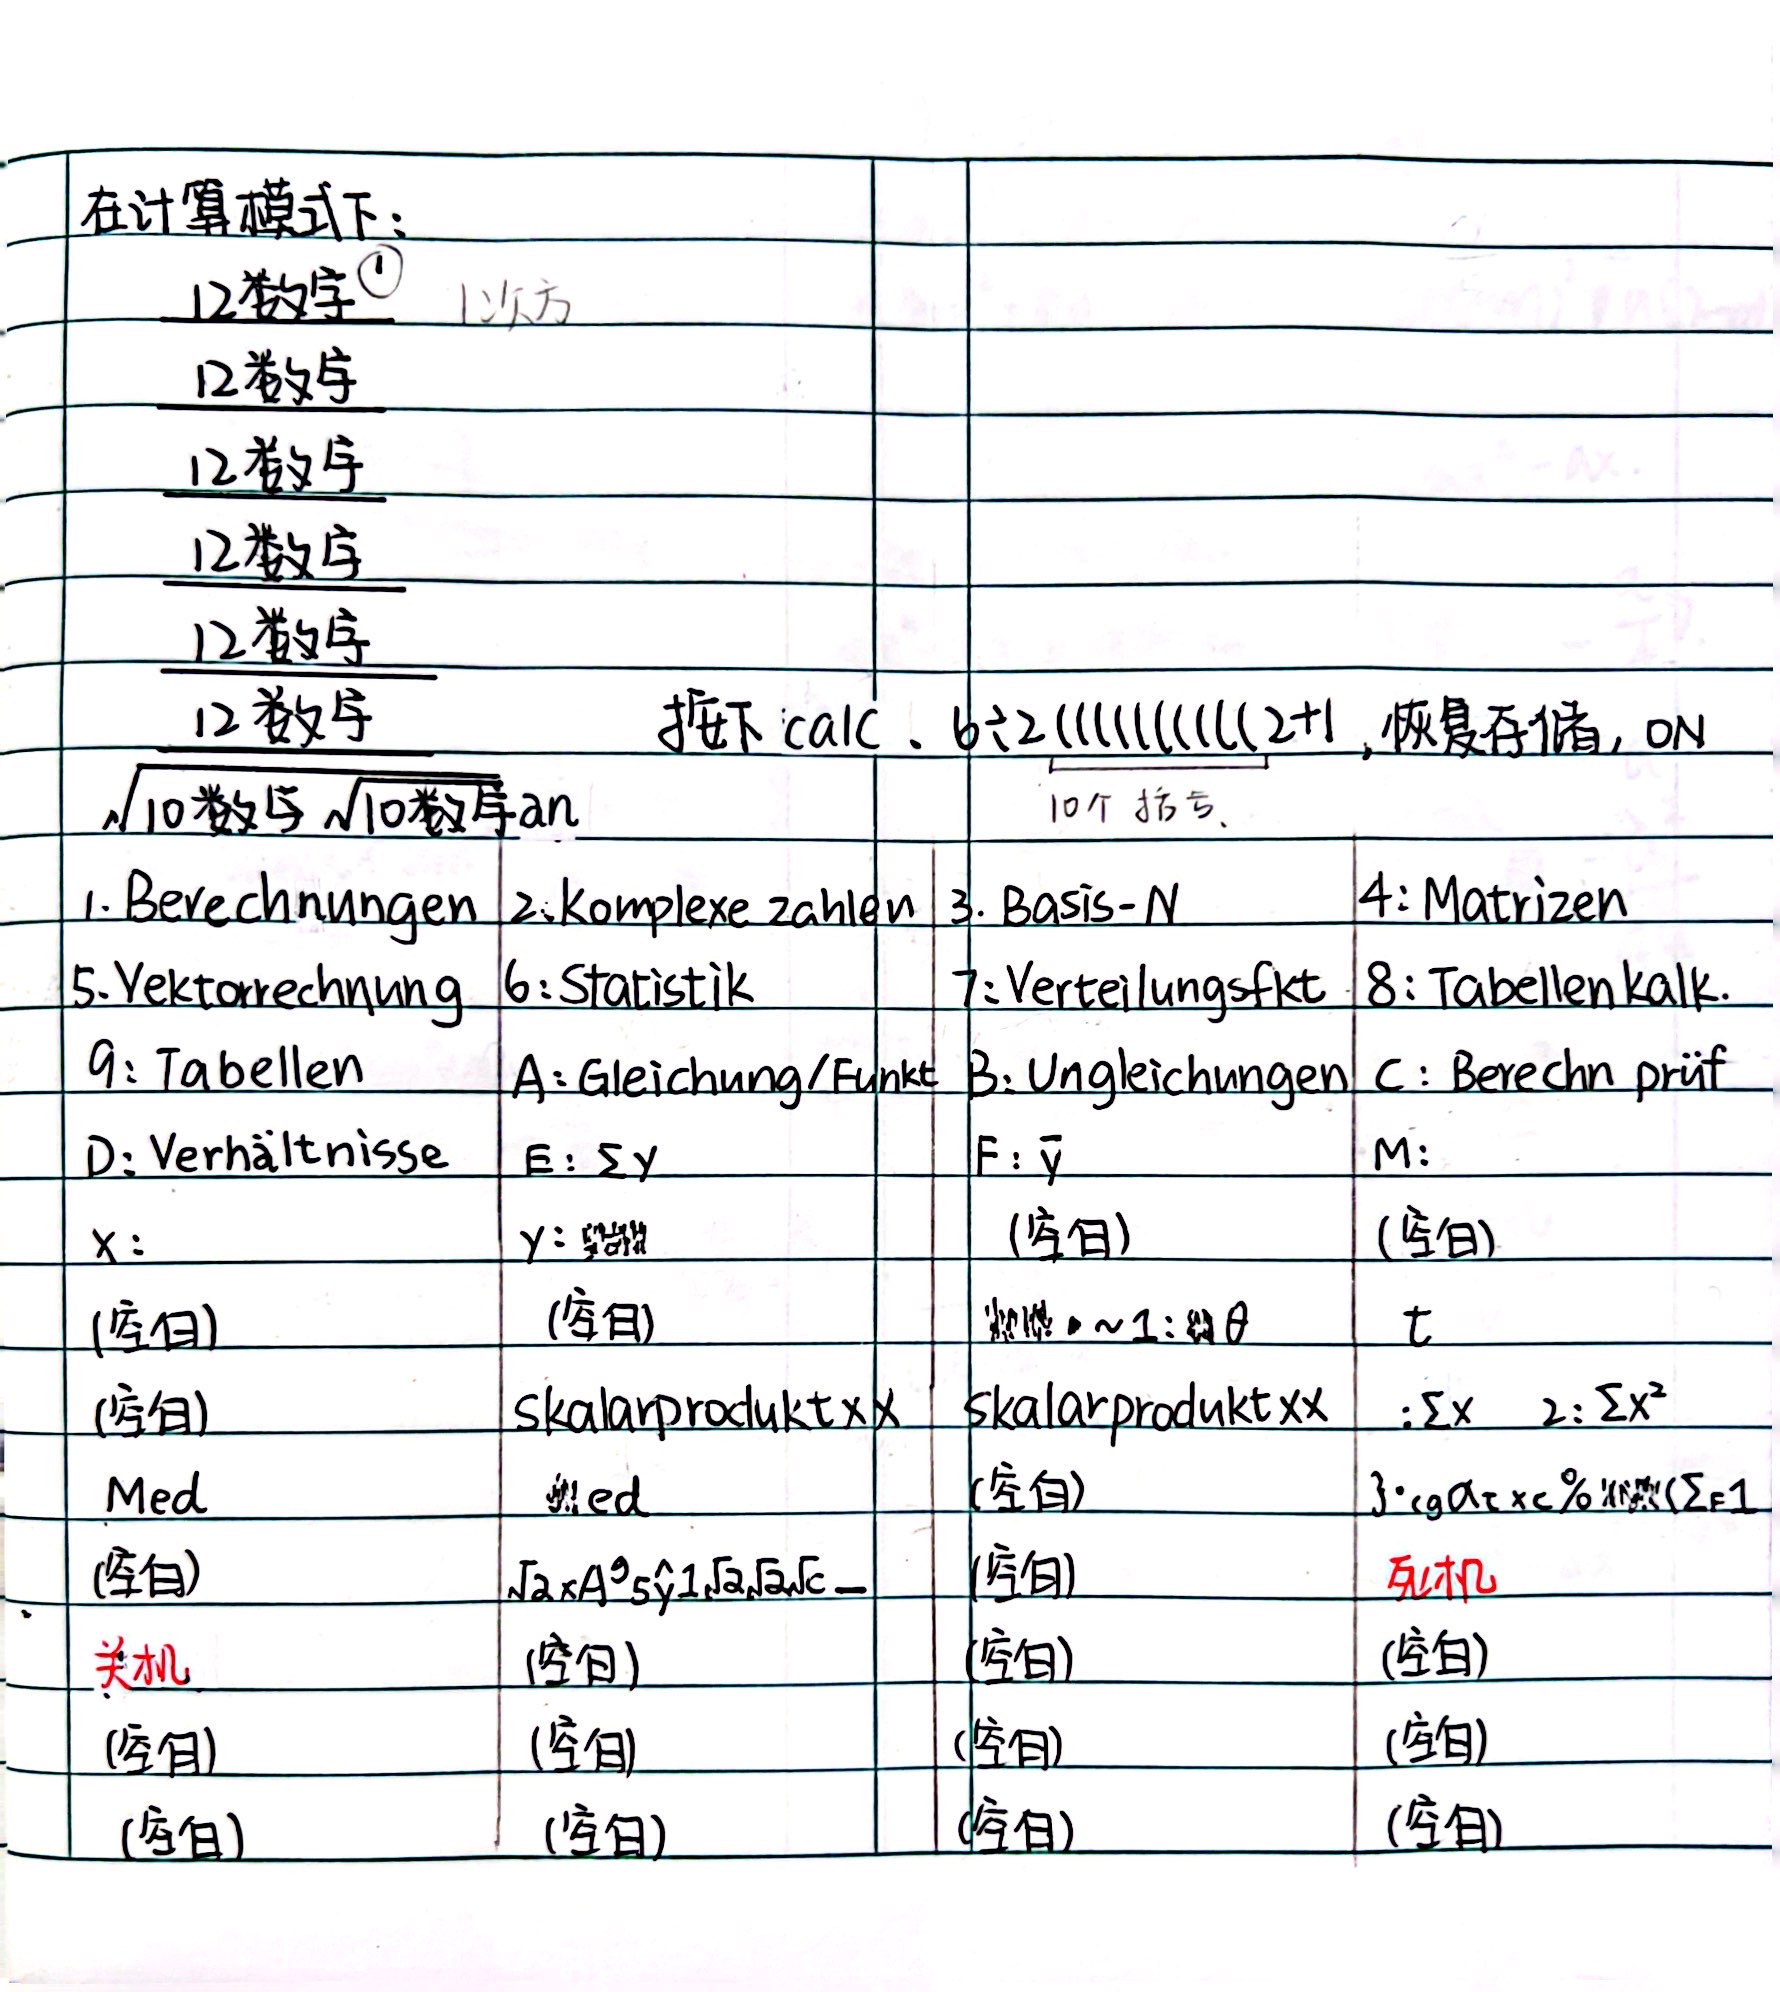 在计算模式下:
12数字① 1次方
12数字
12数字
12数字
12数字
12数字 按下calc、6÷2((((((((((2+1,恢复存储,ON
√10数字√10数字an 10个括号、
1. Berechnungen 2: Komplexe zahlen 3. Basis-N 4: Matrizen
5. Vektorrechnung 6: Statistik 7: Verteilungsfkt 8: Tabellenkalk.
9: Tabellen A: Gleichung/Funkt B: Ungleichungen C: Berechn prüf
D: Verhältnisse E: Σy F: ȳ M:
x: y: (空白) (空白)
(空白) (空白) ~1: θ t
(空白) skalarproduktxx skalarproduktxx :Σx 2: Σx²
Med ed (空白)
(空白) (空白) 死机
关机 (空白) (空白) (空白)
(空白) (空白) (空白) (空白)
(空白) (空白) (空白) (空白)